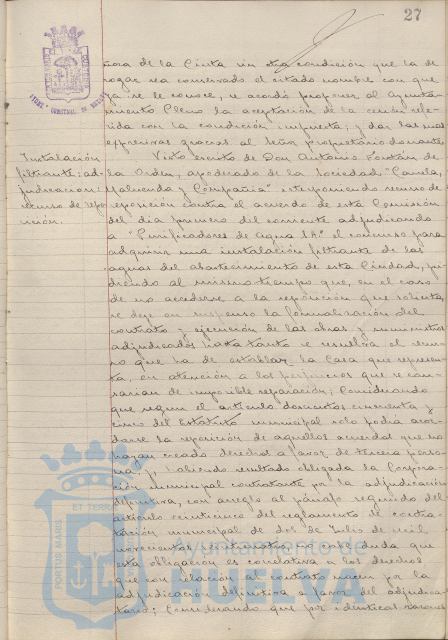 27
ñora de la Cinta sin otra condición que la de
rogar sea conservado el citado nombre con que
ya se le conoce, se acordó proponer al Ayunta-
miento Pleno la aceptación de la cesión refe-
rida con la condición impuesta; y dar las mas
expresivas gracias al Señor propietario donante.
Instalación
filtrante: ad-
judicación:
recurso de repo-
sición.
Visto escrito de Don Antonio
la Orden, apoderado de la Sociedad "Canela,
y Compañía" interponiendo recurso de
reposición contra el acuerdo de esta Comisión
del día primero del corriente adjudicando
a "Purificadores de Agua S.A." el concurso para
adquirir una instalación filtrante de las
aguas del abastecimiento de esta Ciudad, pi-
diendo al mismo tiempo que, en el caso
de no accederse a la reposición que solicita
se deje en suspenso la formalización del
contrato y ejecución de las obras y suministros
adjudicados hasta tanto se resuelva el recur-
so que ha de entablar la Casa que represen-
ta, en atención a los perjuicios que se cau-
sarían de imposible reparación; Considerando
que según el artículo doscientos cincuenta y
cinco del Estatuto municipal solo podía acor-
darse la reposición de aquellos acuerdos que no
hayan creado derechos a favor de tercera perso-
na, y habiendo resultado obligada la Corpora-
ción municipal contratante por la adjudicación
definitiva, con arreglo al párrafo segundo del
artículo del reglamento de contra-
tación municipal de dos de Julio de mil
novecientos veinticuatro, no cabe duda que
esta obligación es correlativa a los derechos
que con relación al contrato nacen por la
adjudicación definitiva a favor del adjudica-
tario; Considerando que por idénticas razones
PORTUS MARIS
ET TERRAE
Ayuntamiento de
HUELVA